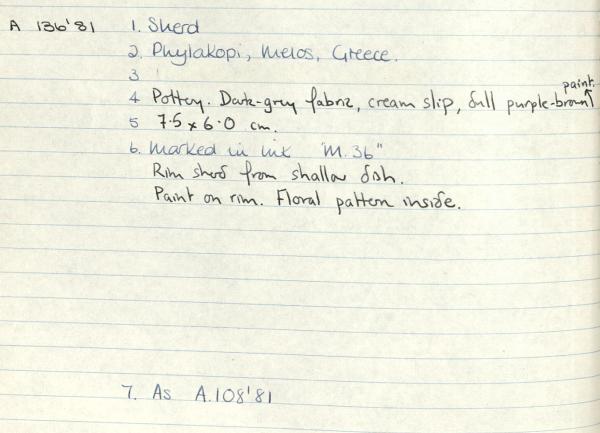 A 136'81 1. Sherd
2. Phylakopi, Melos, Greece.
3
4 Pottery. Dark-grey fabric, cream slip, dull purple-brown paint
5 7.5 x 6.0 cm.
6. Marked in ink "M.36"
Rim sherd from shallow dish.
Paint on rim. Floral pattern inside.
7. As A.108'81